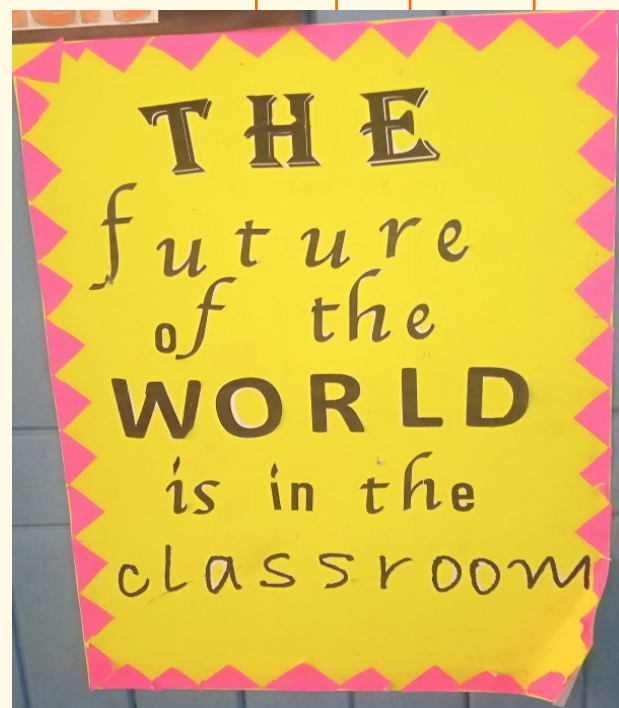 THE
future
of the
WORLD
is in the
classroom